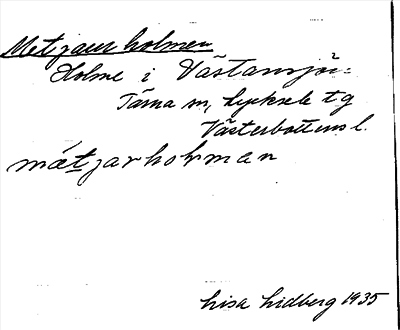 Metjaurholmen
Holme i Västansjön:
Tärna sn, Lycksele tg
Västerbottens l.
mátjarhoḷman
Lisa Lidberg 1935